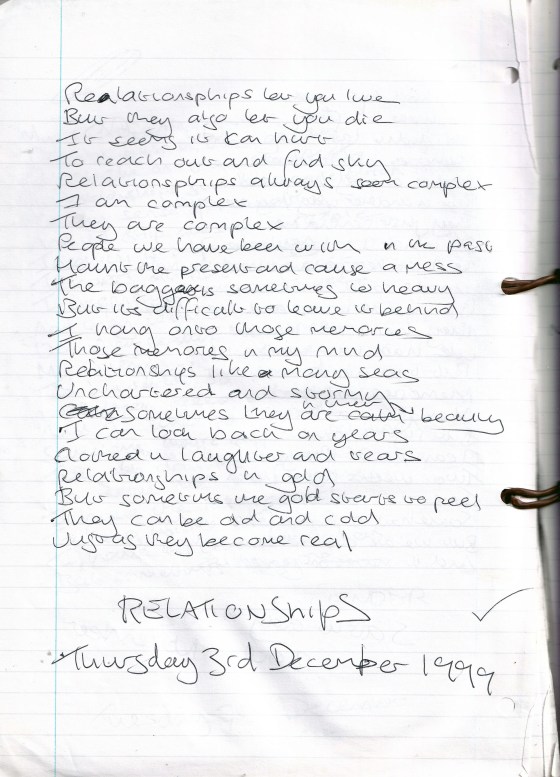 Relationships let you live
But they also let you die
It seems it can hurt
To reach out and find sky
Relationships always seem complex
I am complex
They are complex
People we have been with in the past
Haunt the present and cause a mess
The baggage is sometimes so heavy
But its difficult to leave it behind
I hang onto those memories
Those memories in my mind
Relationships like many seas
Unchartered and stormy
Sometimes they are calm in their beauty
I can look back on years
Clothed in laughter and tears
Relationships in gold
But sometimes the gold starts to peel
They can be old and cold
Just as they become real
RELATIONShipS
Thursday 3rd December 1999